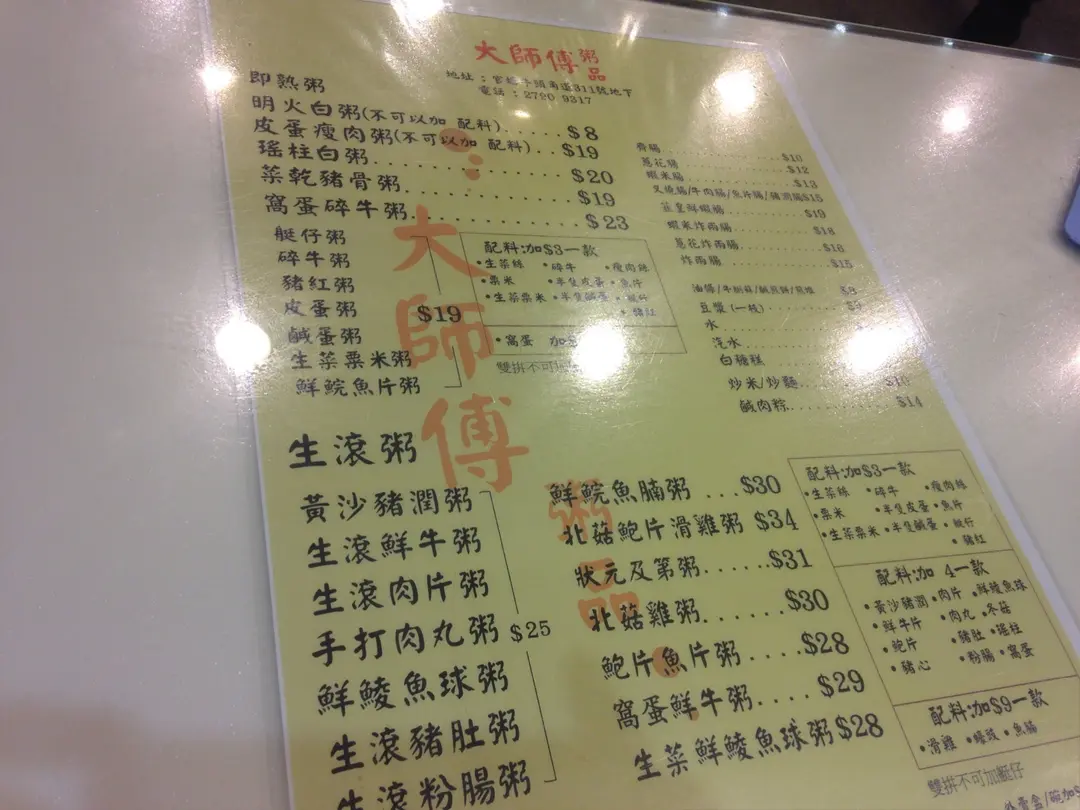 大師傅粥品
地址：官塘牛頭角道311號地下
電話：2790 9317
即熟粥
明火白粥(不可以加 配料)......$8
皮蛋瘦肉粥(不可以加 配料)..$19
瑤柱白粥..................$20
菜乾豬骨粥................$19
窩蛋碎牛粥................$23
艇仔粥
碎牛粥
豬紅粥
皮蛋粥
鹹蛋粥
生菜粟米粥
鮮鯇魚片粥
$19
配料:加$3一款
•生菜絲 •碎牛 •瘦肉絲
•粟米 •半隻皮蛋 •魚片
•生菜粟米 •半隻鹹蛋 •艇仔
•豬紅
•窩蛋 加
雙拼不可加
齋腸..................$10
蔥花腸................$12
蝦米腸................$13
叉燒腸/牛肉腸/魚片腸/豬潤腸$15
韮皇鮮蝦腸............$19
蝦米炸兩腸............$18
蔥花炸兩腸............$16
炸兩腸................$15
豆漿(一枝)
水
汽水
白糖糕
炒米/炒麵
鹹肉粽...........$14
生滾粥
黃沙豬潤粥
生滾鮮牛粥
生滾肉片粥
手打肉丸粥
鮮鯪魚球粥
生滾豬肚粥
生滾粉腸粥
$25
鮮鯇魚腩粥 ...$30
北菇鮑片滑雞粥 $34
狀元及第粥......$31
北菇雞粥......$30
鮑片魚片粥....$28
窩蛋鮮牛粥....$29
生菜鮮鯪魚球粥$28
配料:加$3一款
•生菜絲 •碎牛 •瘦肉絲
•粟米 •半隻皮蛋 •魚片
•生菜粟米 •半隻鹹蛋 •艇仔
•豬紅
配料:加 4一款
•黃沙豬潤 •肉片 •鮮鯪魚球
•鮮牛片 •肉丸 •冬菇
•鮑片 •豬肚 •瑤柱
•豬心 •粉腸 •窩蛋
配料:加$9一款
•滑雞 •蠔豉 •魚腩
雙拼不可加艇仔
大師傅粥品